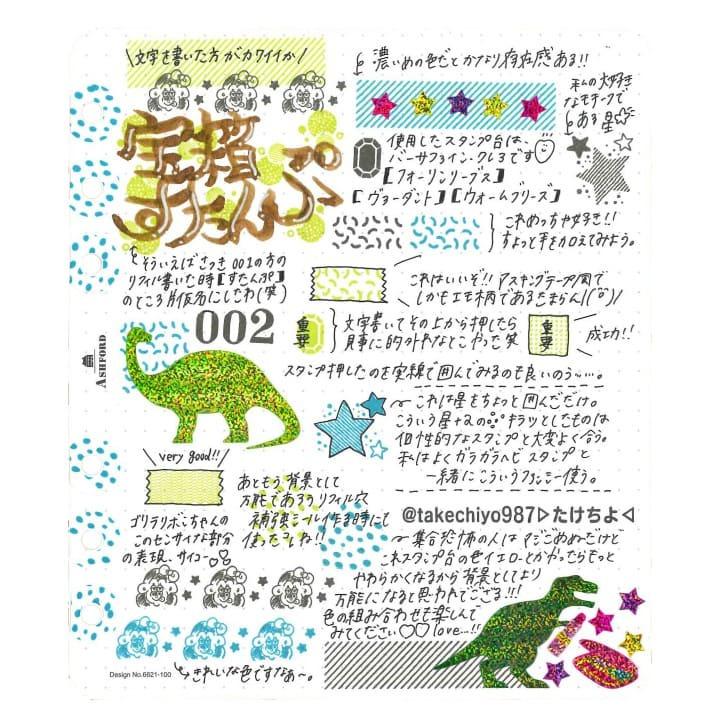 文字を書いた方がカワイイか
濃いめの色だとかなり存在感ある!!
私の大好き
なモチーフで
ある星
宝箱
すたんぷ
使用したスタンプ台は、
バーサファインクレアです
【フォーリンリーブス】
【ヴァーダント】【ウォームブリーズ】
これめっちゃ好き!!
ちょっと手を加えてみよう。
そういえばさっき001の方の
リフィル書いた時【すたんぷ】
のところ片仮名にしたわ(笑)
これはいいぞ!!マスキングテープ風で
しかもエモ柄であるたまらん
002
重要
文字書いてその上から押したら
見事に的外れなとこやった笑
重要
成功!!
ASHFORD
スタンプ押したのを実線で囲んでみるのも良いのう〜…。
これは星をちょっと囲んだだけ。
こういう星+αの キラッとしたものは
個性的なスタンプと大変よく合う。
私はよくガラガラヘビスタンプと
一緒にこういうファンシー使う。
very good!!
あともう背景として
万能であろうリフィル穴
補強シール作る時にも
使ったよね!!
ゴリラリボンちゃんの
このセンサイな部分
の表現、サイコー
@takechiyo987▷たけちよ◁
集合恐怖の人はマジごめぬだけど
これスタンプ台の色イエローとかやったらもっと
やわらかくなるから背景としてより
万能になると思われてござる!!!
色の組み合わせも楽しんで
みてください♡♡love...!!
きれいな色ですなぁ〜。
Design No.6621-100